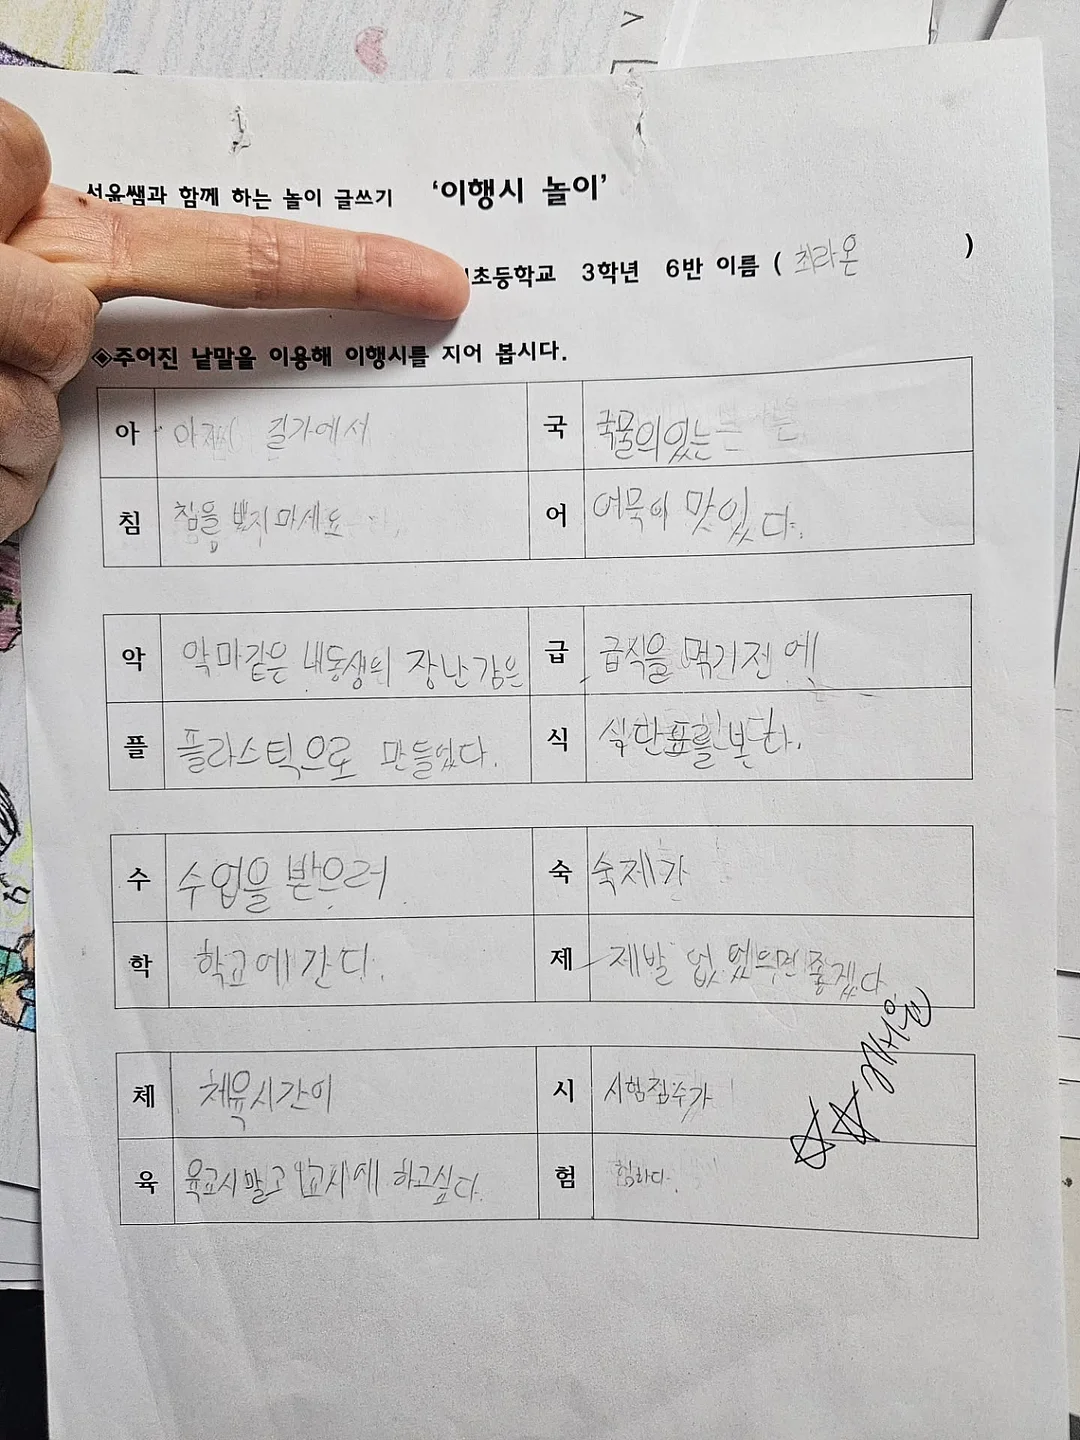 선윤쌤과 함께 하는 놀이 글쓰기 '이행시 놀이'
초등학교 3학년 6반 이름 ( 최라온 )
◈주어진 낱말을 이용해 이행시를 지어 봅시다.
아 길가에서
침 침을 뱉지마세요
국 국물의있는
어 어묵이 맛있다.
악 악마같은 내동생의 장난감은
플 플라스틱으로 만들었다.
급 급식을 먹기전에
식 식단표를 본다.
수 수업을 받으러
학 학교에 간다.
숙 숙제가
제 제발 없었으면 좋겠다
체 체육시간이
육 육교시말고 1교시에 하고싶다.
시 시험점수가
험 험하다.